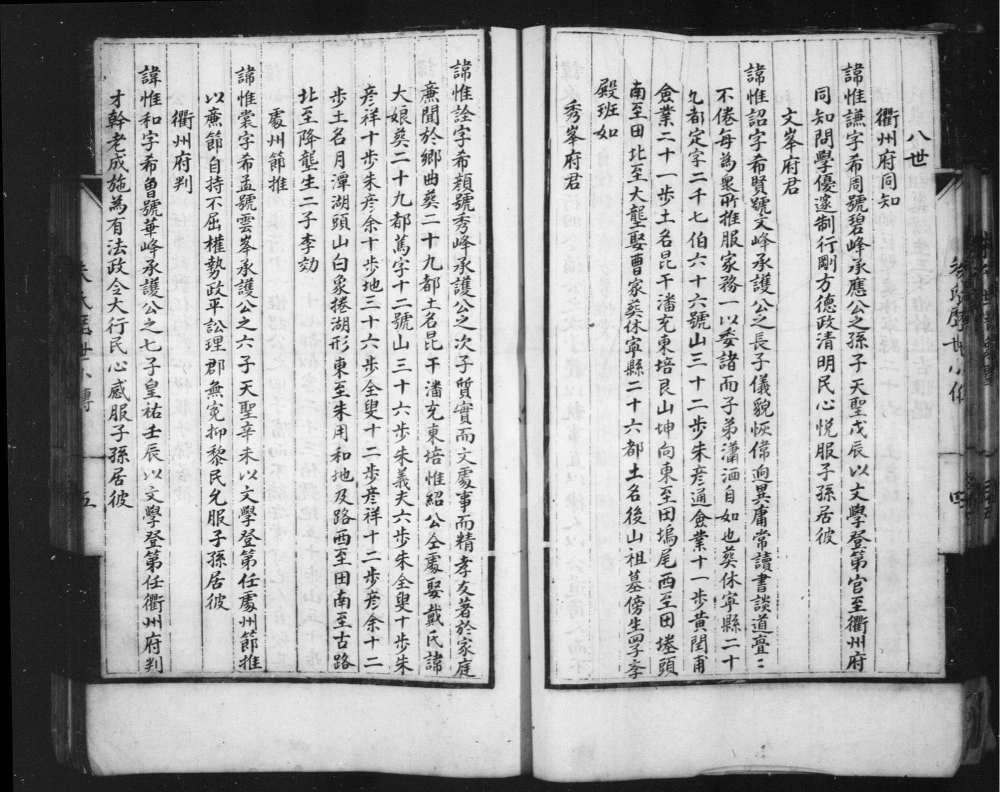 八世
衢州府同知
諱惟謙字希周號碧峰承應公之孫子天聖戊辰以文學登第官至衢州府
同知問學優邃制行剛方德政清明民心悅服子孫居彼
文峯府君
諱惟詔字希賢號文峰承護公之長子儀貌恢偉逈異庸常讀書談道亹〻
不倦每為衆所推服家務一以委諸而子弟瀟洒自如也葵休寧縣二十
九都定字二千七伯六十六號山三十二步朱彥通僉業十一步黃閏甫
僉業二十一步土名昆干潘充東培艮山坤向東至田塢尾西至田塝頭
南至田北至大壟娶曹家葵休寧縣二十六都土名後山祖墓傍生四子季
殿班如
秀峯府君
諱惟詮字希顔號秀峰承護公之次子質實而文處事而精孝友著於家庭
亷聞於鄉曲葵二十九都土名昆干潘充東培惟紹公仝處娶戴氏諱
大娘葵二十九都萬字十二號山三十六步朱義夫六步朱全叟十步朱
彥祥十步朱彥余十步地三十六步全叟十二步彥祥十二步彥余十二
步土名月潭湖頭山白象捲湖形東至朱用和地及路西至田南至古路
北至降壟生二子李効
處州節推
諱惟裳字希孟號雲峯承護公之六子天聖辛未以文學登第任處州節推
以亷節自持不屈權勢政平訟理郡無寃抑黎民允服子孫居彼
衢州府判
諱惟和字希曾號華峰承護公之七子皇祐壬辰以文學登第任衢州府判
才幹老成施為有法政令大行民心感服子孫居彼